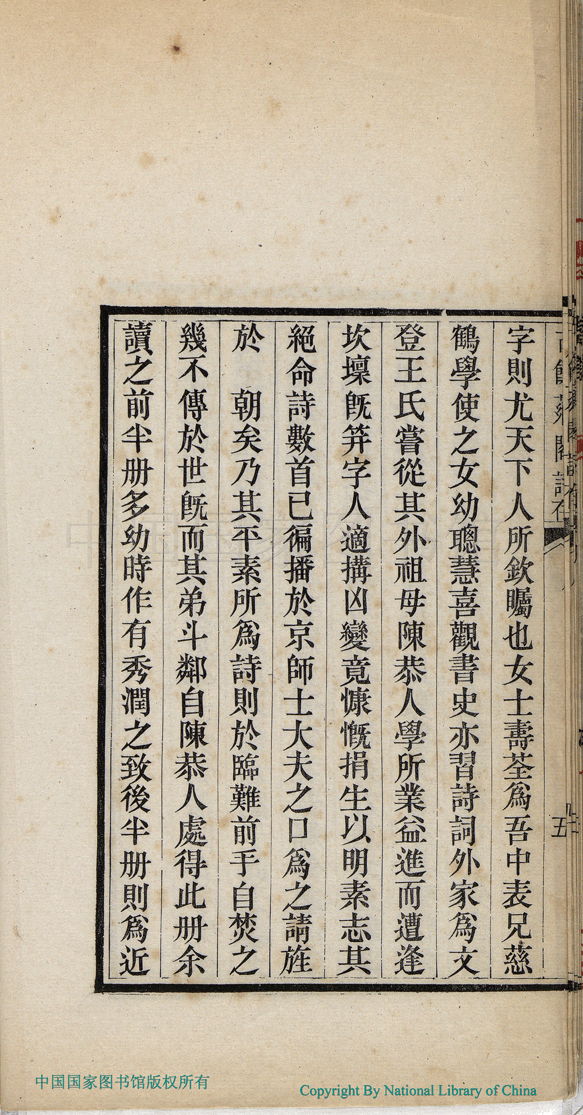 字則尤天下人所欽矚也女士壽荃爲吾中表兄慈
鶴學使之女幼聰慧喜觀書史亦習詩詞外家爲文
登王氏嘗從其外祖母陳恭人學所業益進而遭逢
坎壈旣笄字人適搆凶變竟慷慨捐生以明素志其
絕命詩數首已徧播於京師士大夫之口爲之請旌
於　朝矣乃其平素所爲詩則於臨難前手自焚之
幾不傳於世旣而其弟斗鄰自陳恭人處得此册余
讀之前半册多幼時作有秀潤之致後半册則爲近
五
中国国家图书馆版权所有
Copyright By National Library of China